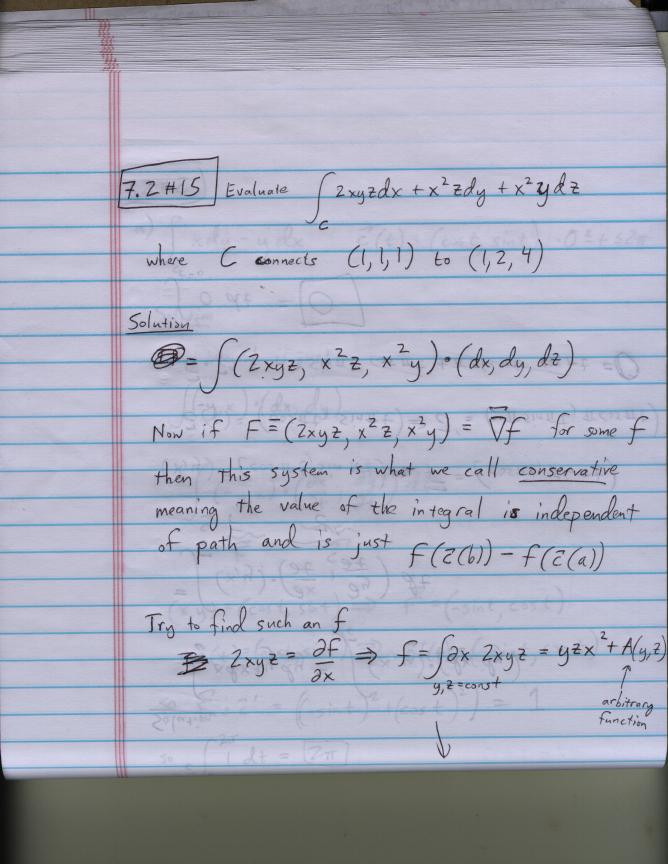 7.2 #15 Evaluate ∫_C 2xyzdx + x²zdy + x²ydz
where C connects (1,1,1) to (1,2,4)
Solution
= ∫(2xyz, x²z, x²y)•(dx,dy,dz)
Now if F ≡ (2xyz, x²z, x²y) = ∇f for some f
then this system is what we call conservative
meaning the value of the integral is independent
of path and is just f(c̄(b)) - f(c̄(a))
Try to find such an f
2xyz = ∂f/∂x ⇒ f = ∫∂x 2xyz = yzx² + A(y,z)
y,z=const
arbitrary
function